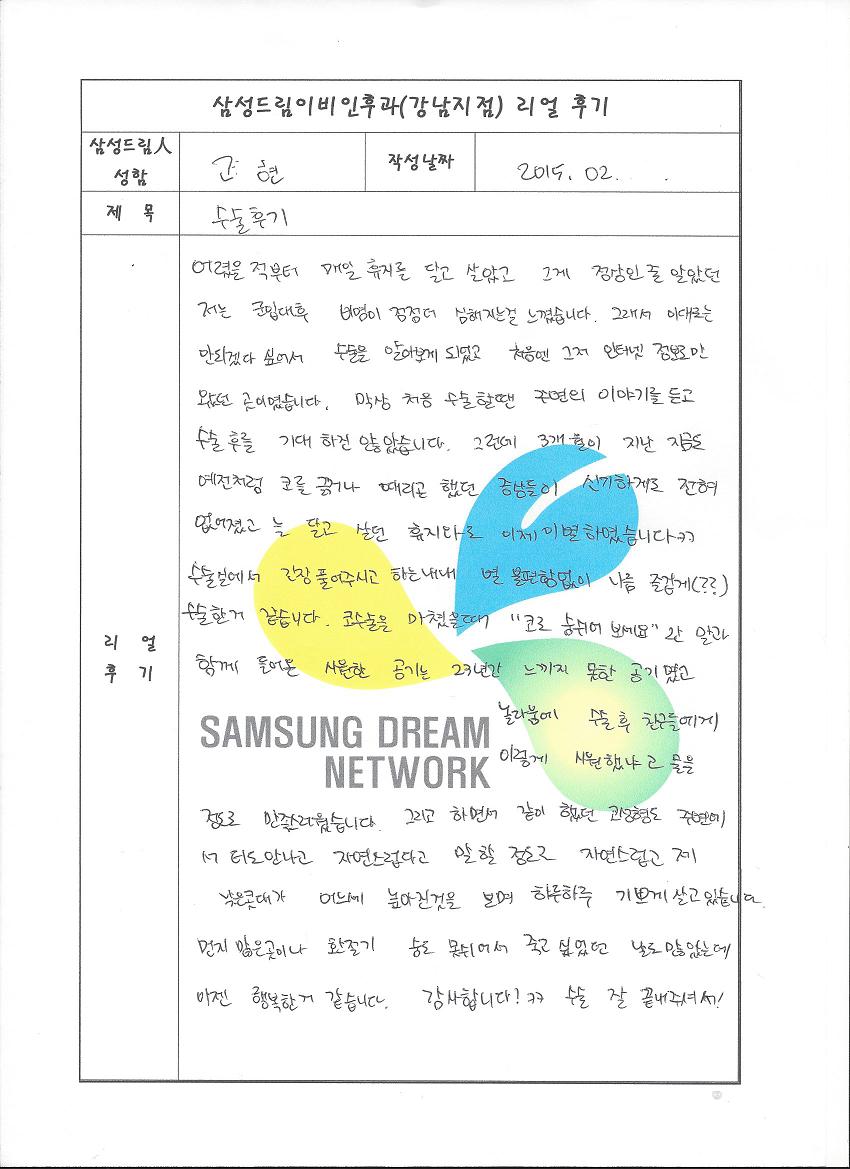 삼성드림이비인후과(강남지점) 리얼 후기
삼성드림人
성함
현
작성날짜
2015. 02.
제 목
수술후기
리 얼
후 기
어렸을 적부터 매일 휴지를 달고 살았고 그게 정상인 줄 알았던
저는 군입대후 비염이 점점더 심해지는걸 느꼈습니다. 그래서 이대로는
안되겠다 싶어서 수술을 알아보게 되었고 처음엔 그저 인터넷 정보로만
왔던 곳이였습니다. 막상 처음 수술할땐 주변의 이야기를 듣고
수술 후를 기대 하진 않았습니다. 그런데 3개월이 지난 지금도
예전처럼 코를 긁거나 때리고 했던 증상들이 신기하게도 전혀
없어졌고 늘 달고 살던 휴지와도 이제 이별하였습니다ㅋㅋ
수술실에서 긴장 풀어주시고 하는내내 별 불편함없이 나름 즐겁게(??)
수술한거 같습니다. 코수술을 마쳤을때 "코로 숨쉬어 보세요" 란 말과
함께 들어온 시원한 공기는 23년간 느끼지 못한 공기였고
놀라움에 수술후 친구들에게
이렇게 시원했냐고 물을
SAMSUNG DREAM
NETWORK
정도로 만족스러웠습니다. 그리고 하면서 같이 했던 코성형도 주변에
서 티도안나고 자연스럽다고 말할 정도로 자연스럽고 제
낮은콧대가 어느새 높아진것을 보며 하루하루 기쁘게 살고있습니다.
먼지 많은곳이나 환절기 숨도 못쉬어서 죽고 싶었던 날도 많았는데
이젠 행복한거 같습니다. 감사합니다!ㅋㅋ 수술 잘 끝내주셔서!